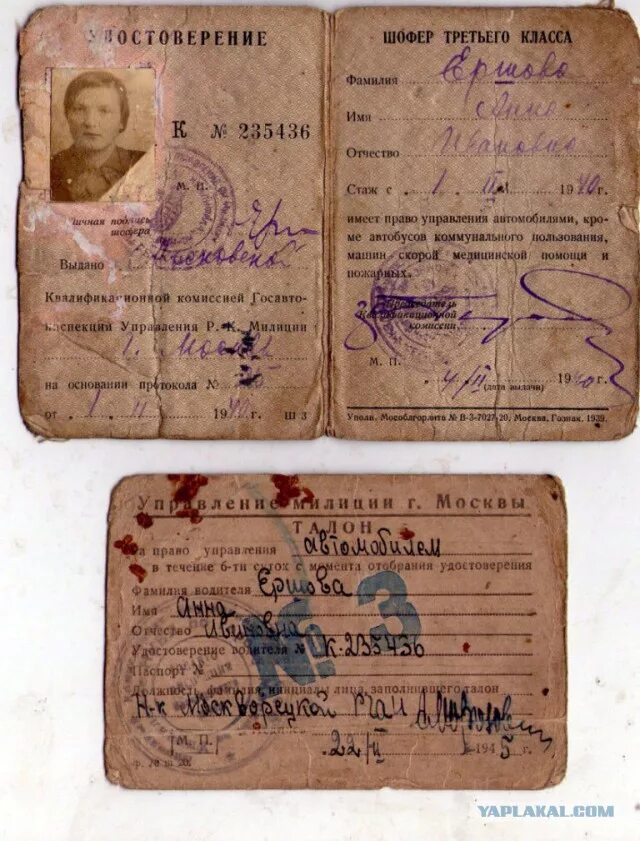 УДОСТОВЕРЕНИЕ
К № 235436
М. П.
Личная подпись
шофера
Выдано Московской
Квалификационной комиссией Госавто-
инспекции Управления Р.-К. Милиции
г. Москвы
на основании протокола №
от 1 II 1940 г. Ш 3
ШОФЕР ТРЕТЬЕГО КЛАССА
Фамилия Ершова
Имя Анна
Отчество Ивановна
Стаж с 1 II 1940 г.
имеет право управления автомобилями, кро-
ме автобусов коммунального пользования,
машин скорой медицинской помощи и
пожарных.
Председатель
Квалификационной
комиссии
М. П.
4/II 1940 г.
(дата выдачи)
Уполн. Мособлгорлита № В-3-7027-20, Москва, Гознак. 1939.
Управление милиции г. Москвы
ТАЛОН
на право управления автомобилем
в течение 6-ти суток с момента отобрания удостоверения
Фамилия водителя Ершова
Имя Анна
Отчество Ивановна
№ 3
Удостоверение водителя № К-235436
Паспорт №
Должность, фамилия, инициалы лица, заполнившего талон
Н-к Москворецкой ГАИ
М. П. 22/II 1945 г.
YAPLAKAL.COM